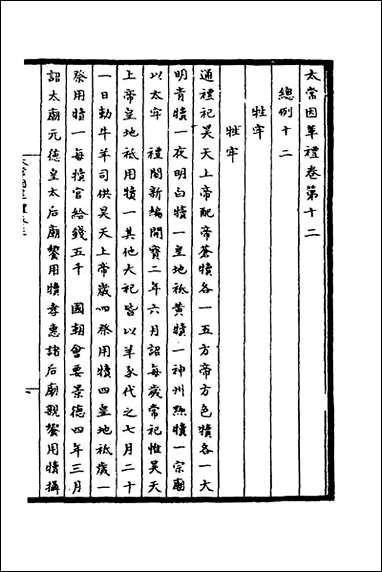 太常因革禮卷第十二
總例十二
牲牢
牲牢
通禮祀昊天上帝配帝蒼犢各一五方帝方色犢各一大
明青犢一夜明白犢一皇地祇黃犢一神州黝犢一宗廟
以太牢　禮閣新編開寶二年六月詔每歲常祀惟昊天
上帝皇地祇用犢一其他大祀皆以羊豕代之七月二十
一日勅牛羊司供昊天上帝歲四祭用犢四皇地祇歲一
祭用犢一每犢官給錢五千　國朝會要景德四年三月
詔太廟元德皇太后廟饗用犢孝惠諸后廟親饗用犢攝